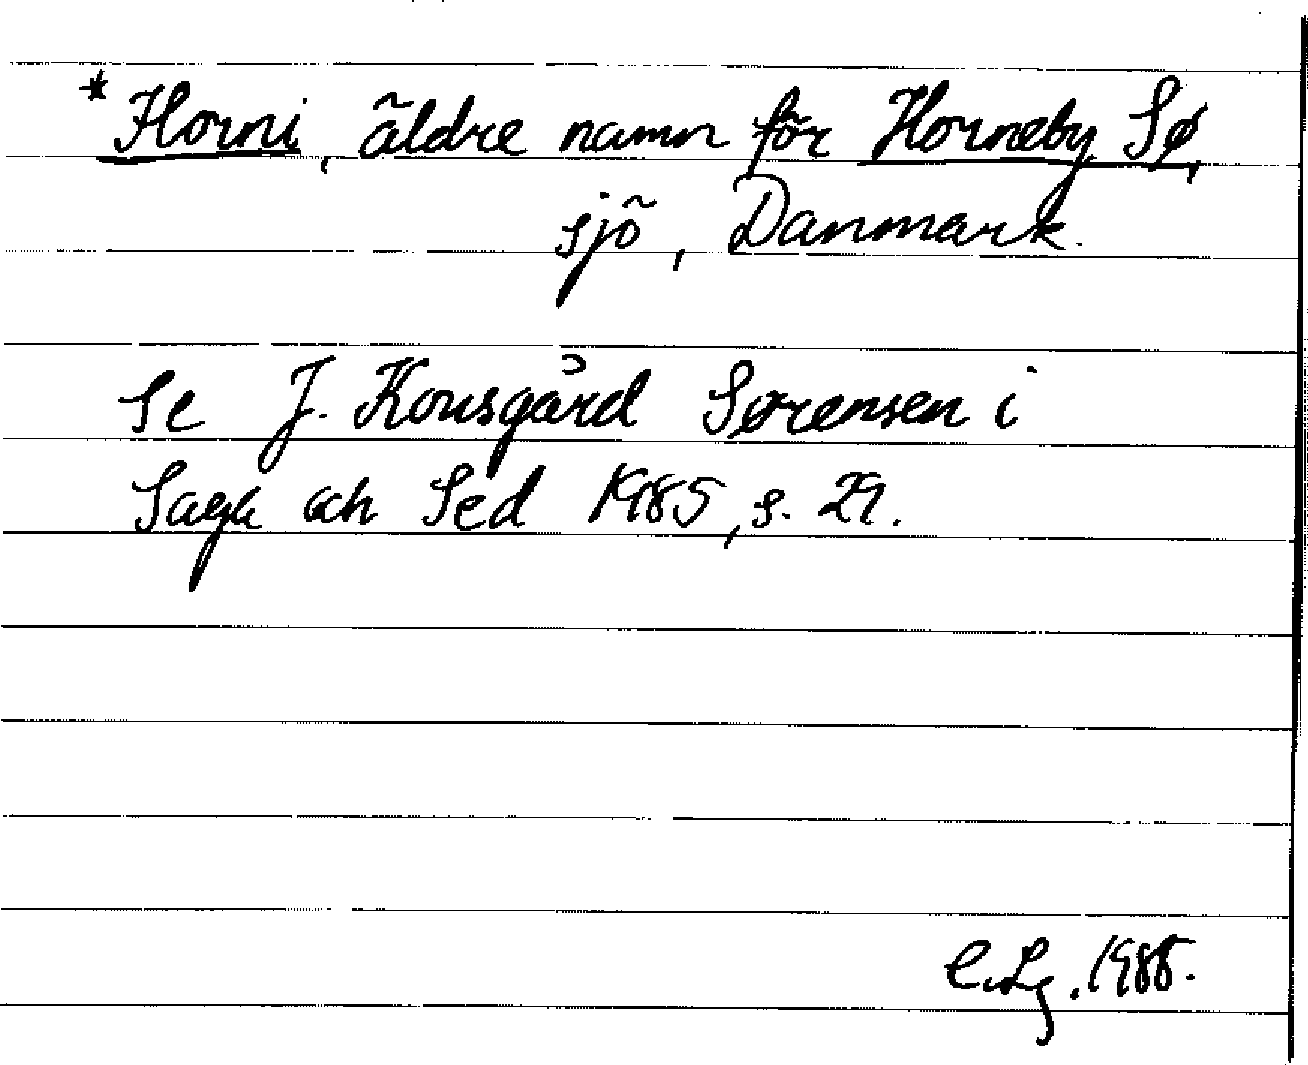 *Horni, äldre namn för Horneby Sø,
sjö, Danmark.
Se J. Kousgård Sørensen i
Saga och Sed 1985, s. 29.
C. Lg. 1988.